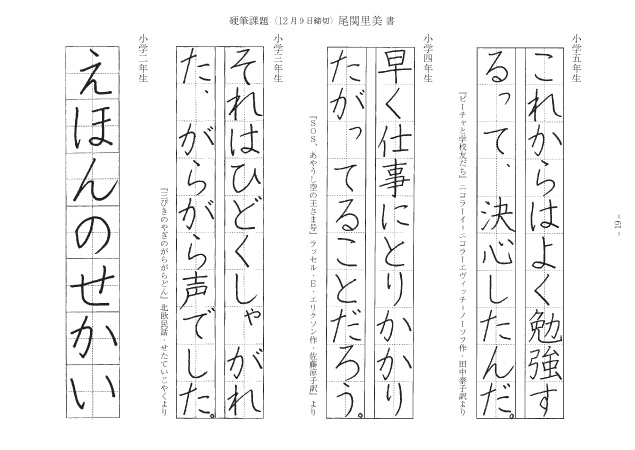 硬筆課題（12月9日締切）尾関里美 書
小学五年生
これからはよく勉強す
るって、決心したんだ。
『ビーチャと学校友だち』ニコラーイ＝ニコラーエヴィッチ＝ノーソフ作・田中泰子訳より
小学四年生
早く仕事にとりかかり
たがってることだろう。
『ＳＯＳ、あやうし空の王さま号』ラッセル・Ｅ・エリクソン作・佐藤涼子訳』より
小学三年生
それはひどくしゃがれ
た、がらがら声でした。
『三びきのやぎのがらがらどん』北欧民話・せたていじやくより
小学二年生
えほんのせかい